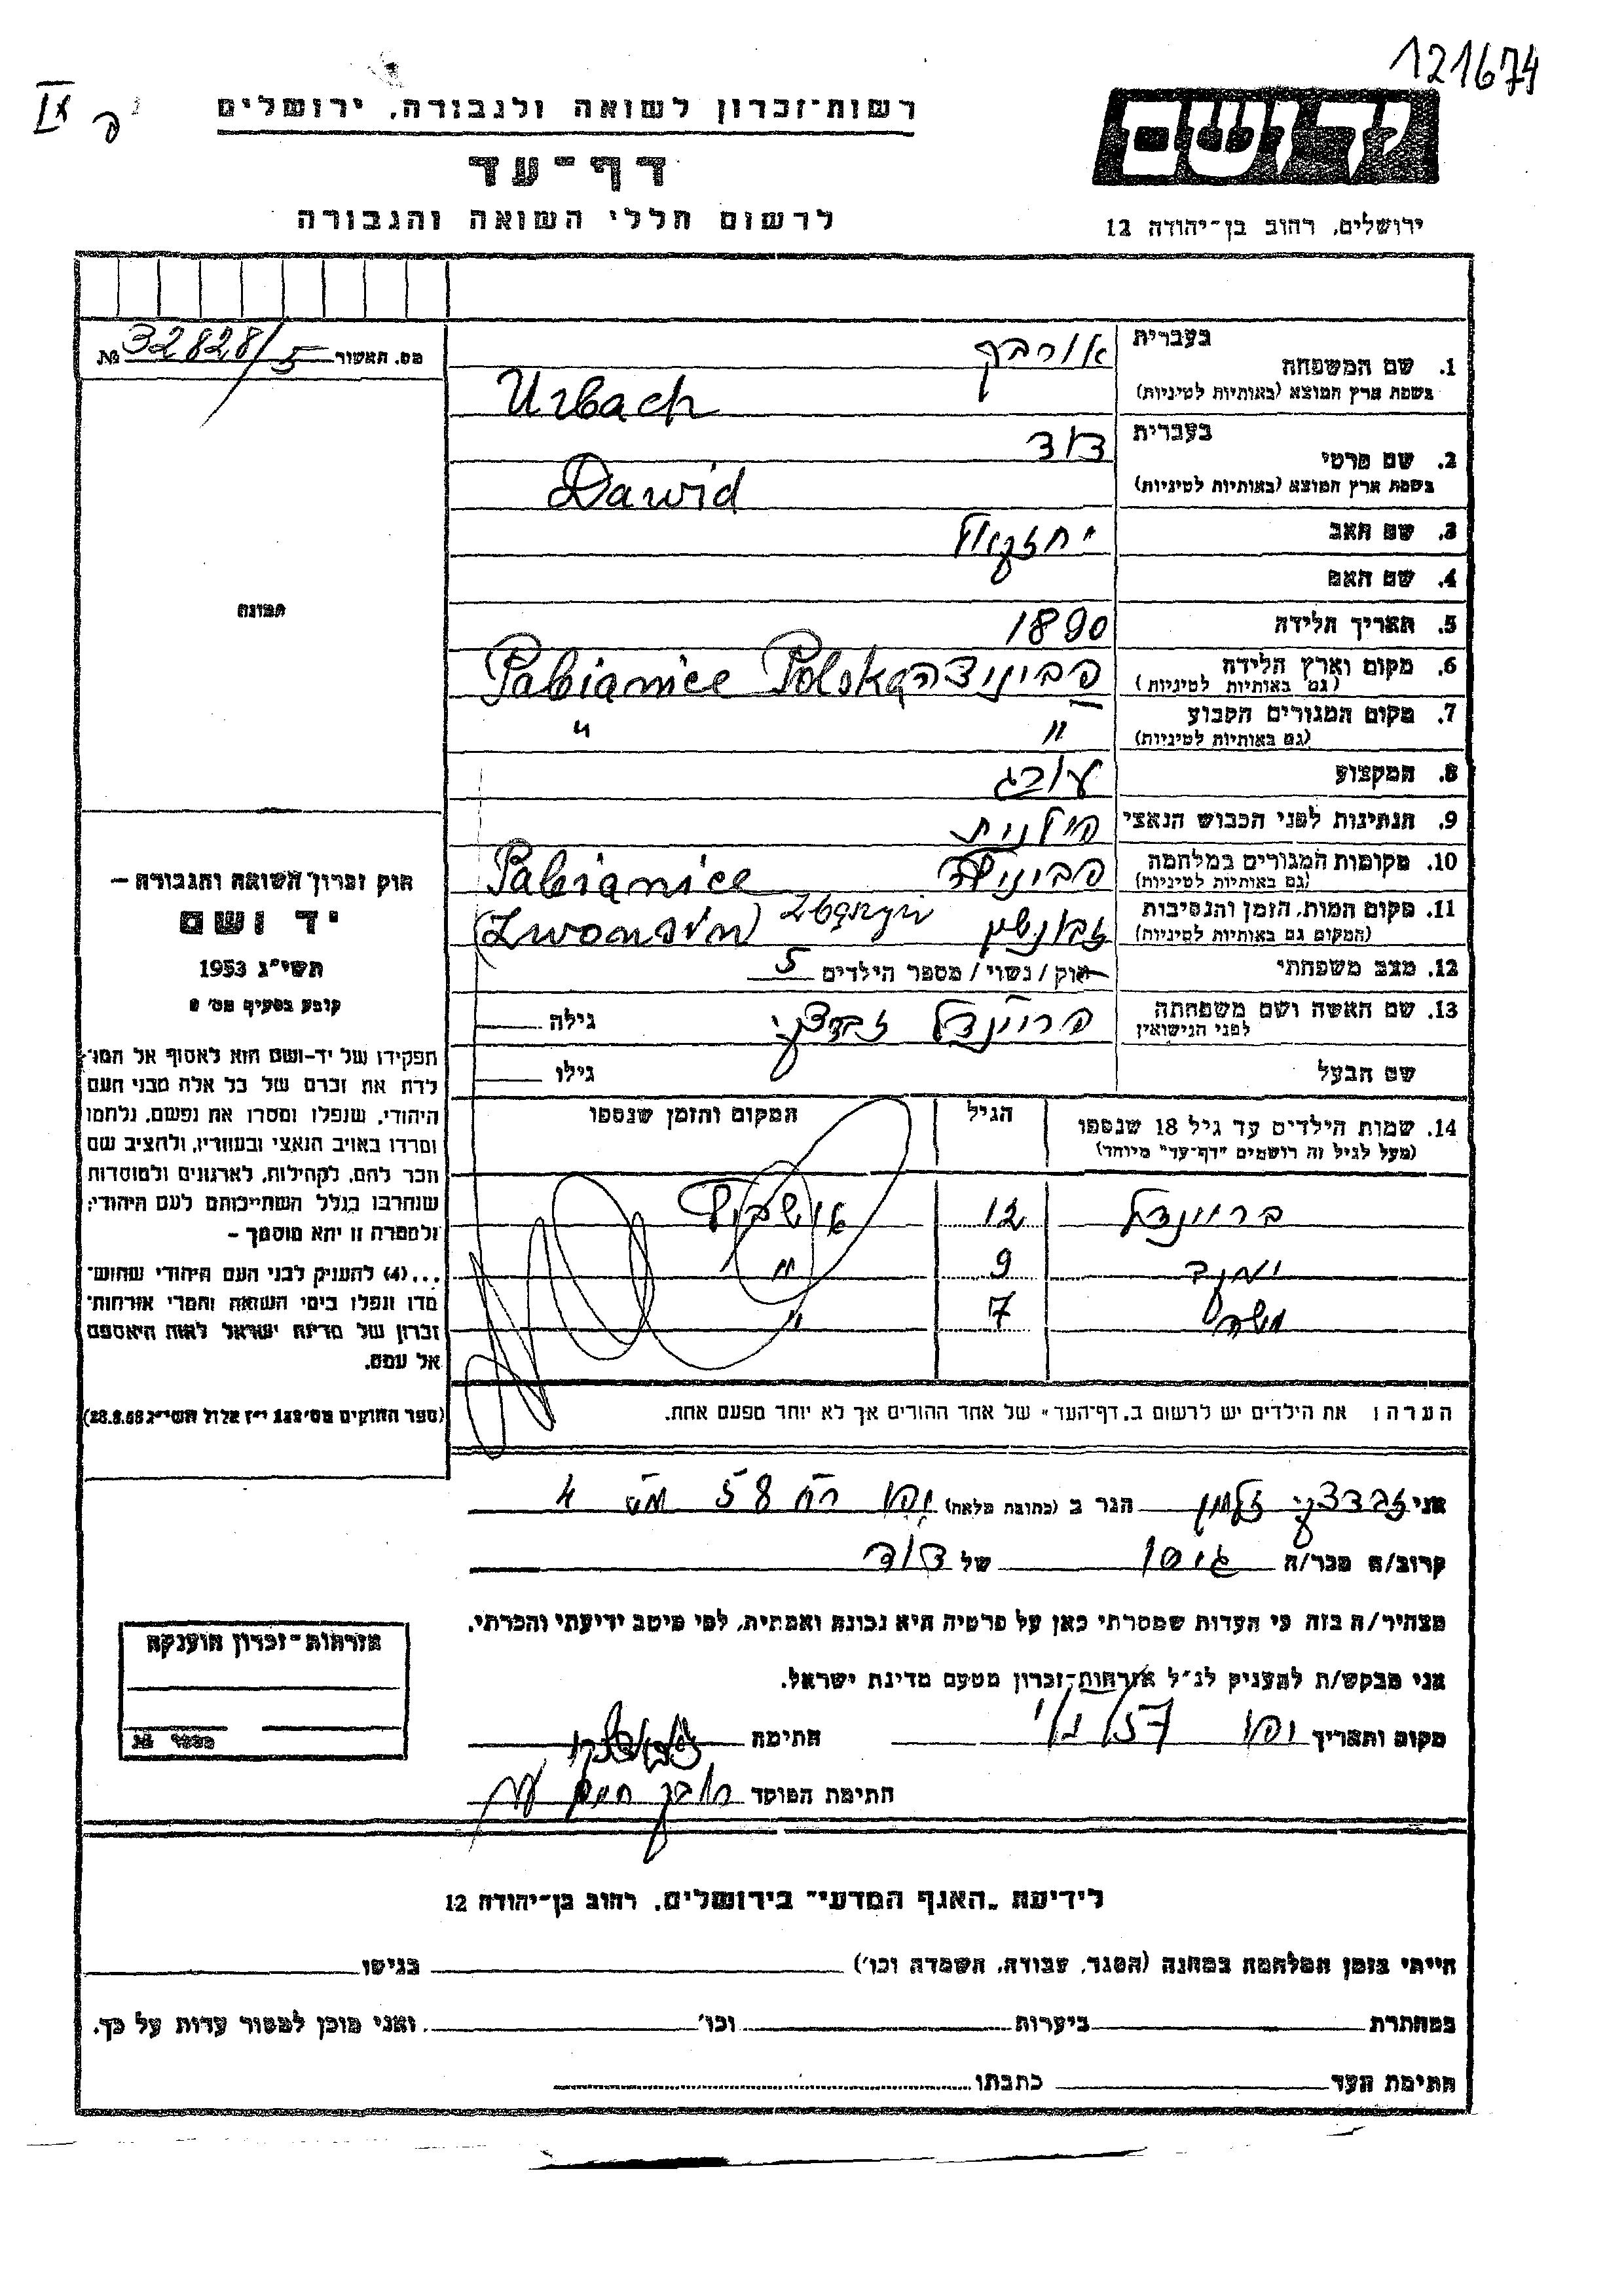 121674
IX
פ
רשות-זכרון לשואה ולגבורה, ירושלים
ד ושם
דף-עד
לרשום חללי השואה והגבורה
ירושלים, רחוב בן-יהודה 12
מס. האשור 32828/5 №
בעברית
1. שם המשפחה אורבך
בשפת ארץ המוצא (באותיות לטיניות) Urbach
בעברית
2. שם פרטי דוד
בשפת ארץ המוצא (באותיות לטיניות) Dawid
3. שם האב יחזקאל
4. שם האם
5. תאריך הלידה 1890
6. מקום וארץ הלידה פביניצה Pabianice Polska
(גם באותיות לטיניות)
7. מקום המגורים הקבוע " "
(גם באותיות לטיניות)
8. המקצוע
9. הנתינות לפני הכבוש הנאצי פולנית
10. מקומות המגורים במלחמה Pabianice
(גם באותיות לטיניות)
11. מקום המות, הזמן והנסיבות זבונשין Zbąszyń (Zwonsin)
(המקום גם באותיות לטיניות)
12. מצב משפחתי רווק / נשוי / מספר הילדים 5
13. שם האשה ושם משפחתה
לפני הנישואין פריינדל גילה
שם הבעל גילו
14. שמות הילדים עד גיל 18 שנספו הגיל המקום והזמן שנספו
(מעל לגיל זה רושמים "דף-עד" מיוחד)
בריינדל 12
9 "
משה 7 "
הערה: את הילדים יש לרשום ב„דף-העד" של אחד ההורים אך לא יותר מפעם אחת.
תמונה
חוק זכרון השואה והגבורה –
יד ושם
תשי"ג 1953
קובע בסעיף מס' 2
תפקידו של יד-ושם הוא לאסוף אל המו-
לדת את זכרם של כל אלה מבני העם
היהודי, שנפלו ומסרו את נפשם, נלחמו
ומרדו באויב הנאצי ובעוזריו, ולהציב שם
וזכר להם, לקהילות, לארגונים ולמוסדות
שנחרבו בגלל השתייכותם לעם היהודי;
ולמטרה זו יהא מוסמך –
...(4) להעניק לבני העם היהודי שהוש-
מדו ונפלו בימי השואה והמרי אזרחות-
זכרון של מדינת ישראל לאות היאספם
אל עמם.
(ספר החוקים מס' 132 י"ז אלול תשי"ג 28.8.53)
אני זלמן הגר ב (כתובת מלאה) יפו 58 4
קרוב/ה מכר/ה גיסו של דוד
מצהיר/ה בזה כי העדות שמסרתי כאן על פרטיה היא נכונה ואמתית, לפי מיטב ידיעתי והכרתי.
אני מבקש/ת להעניק לנ"ל אזרחות-זכרון מטעם מדינת ישראל.
מקום ותאריך יפו חתימה
חתימת המוסד
אזרחות-זכרון הוענקה
מספר №
לידיעת „האגף המדעי" בירושלים, רחוב בן-יהודה 12
הייתי בזמן המלחמה במחנה (הסגר, עבודה, השמדה וכו') בגיטו
במחתרת ביערות וכו' ואני מוכן למסור עדות על כך.
חתימת העד כתבתו